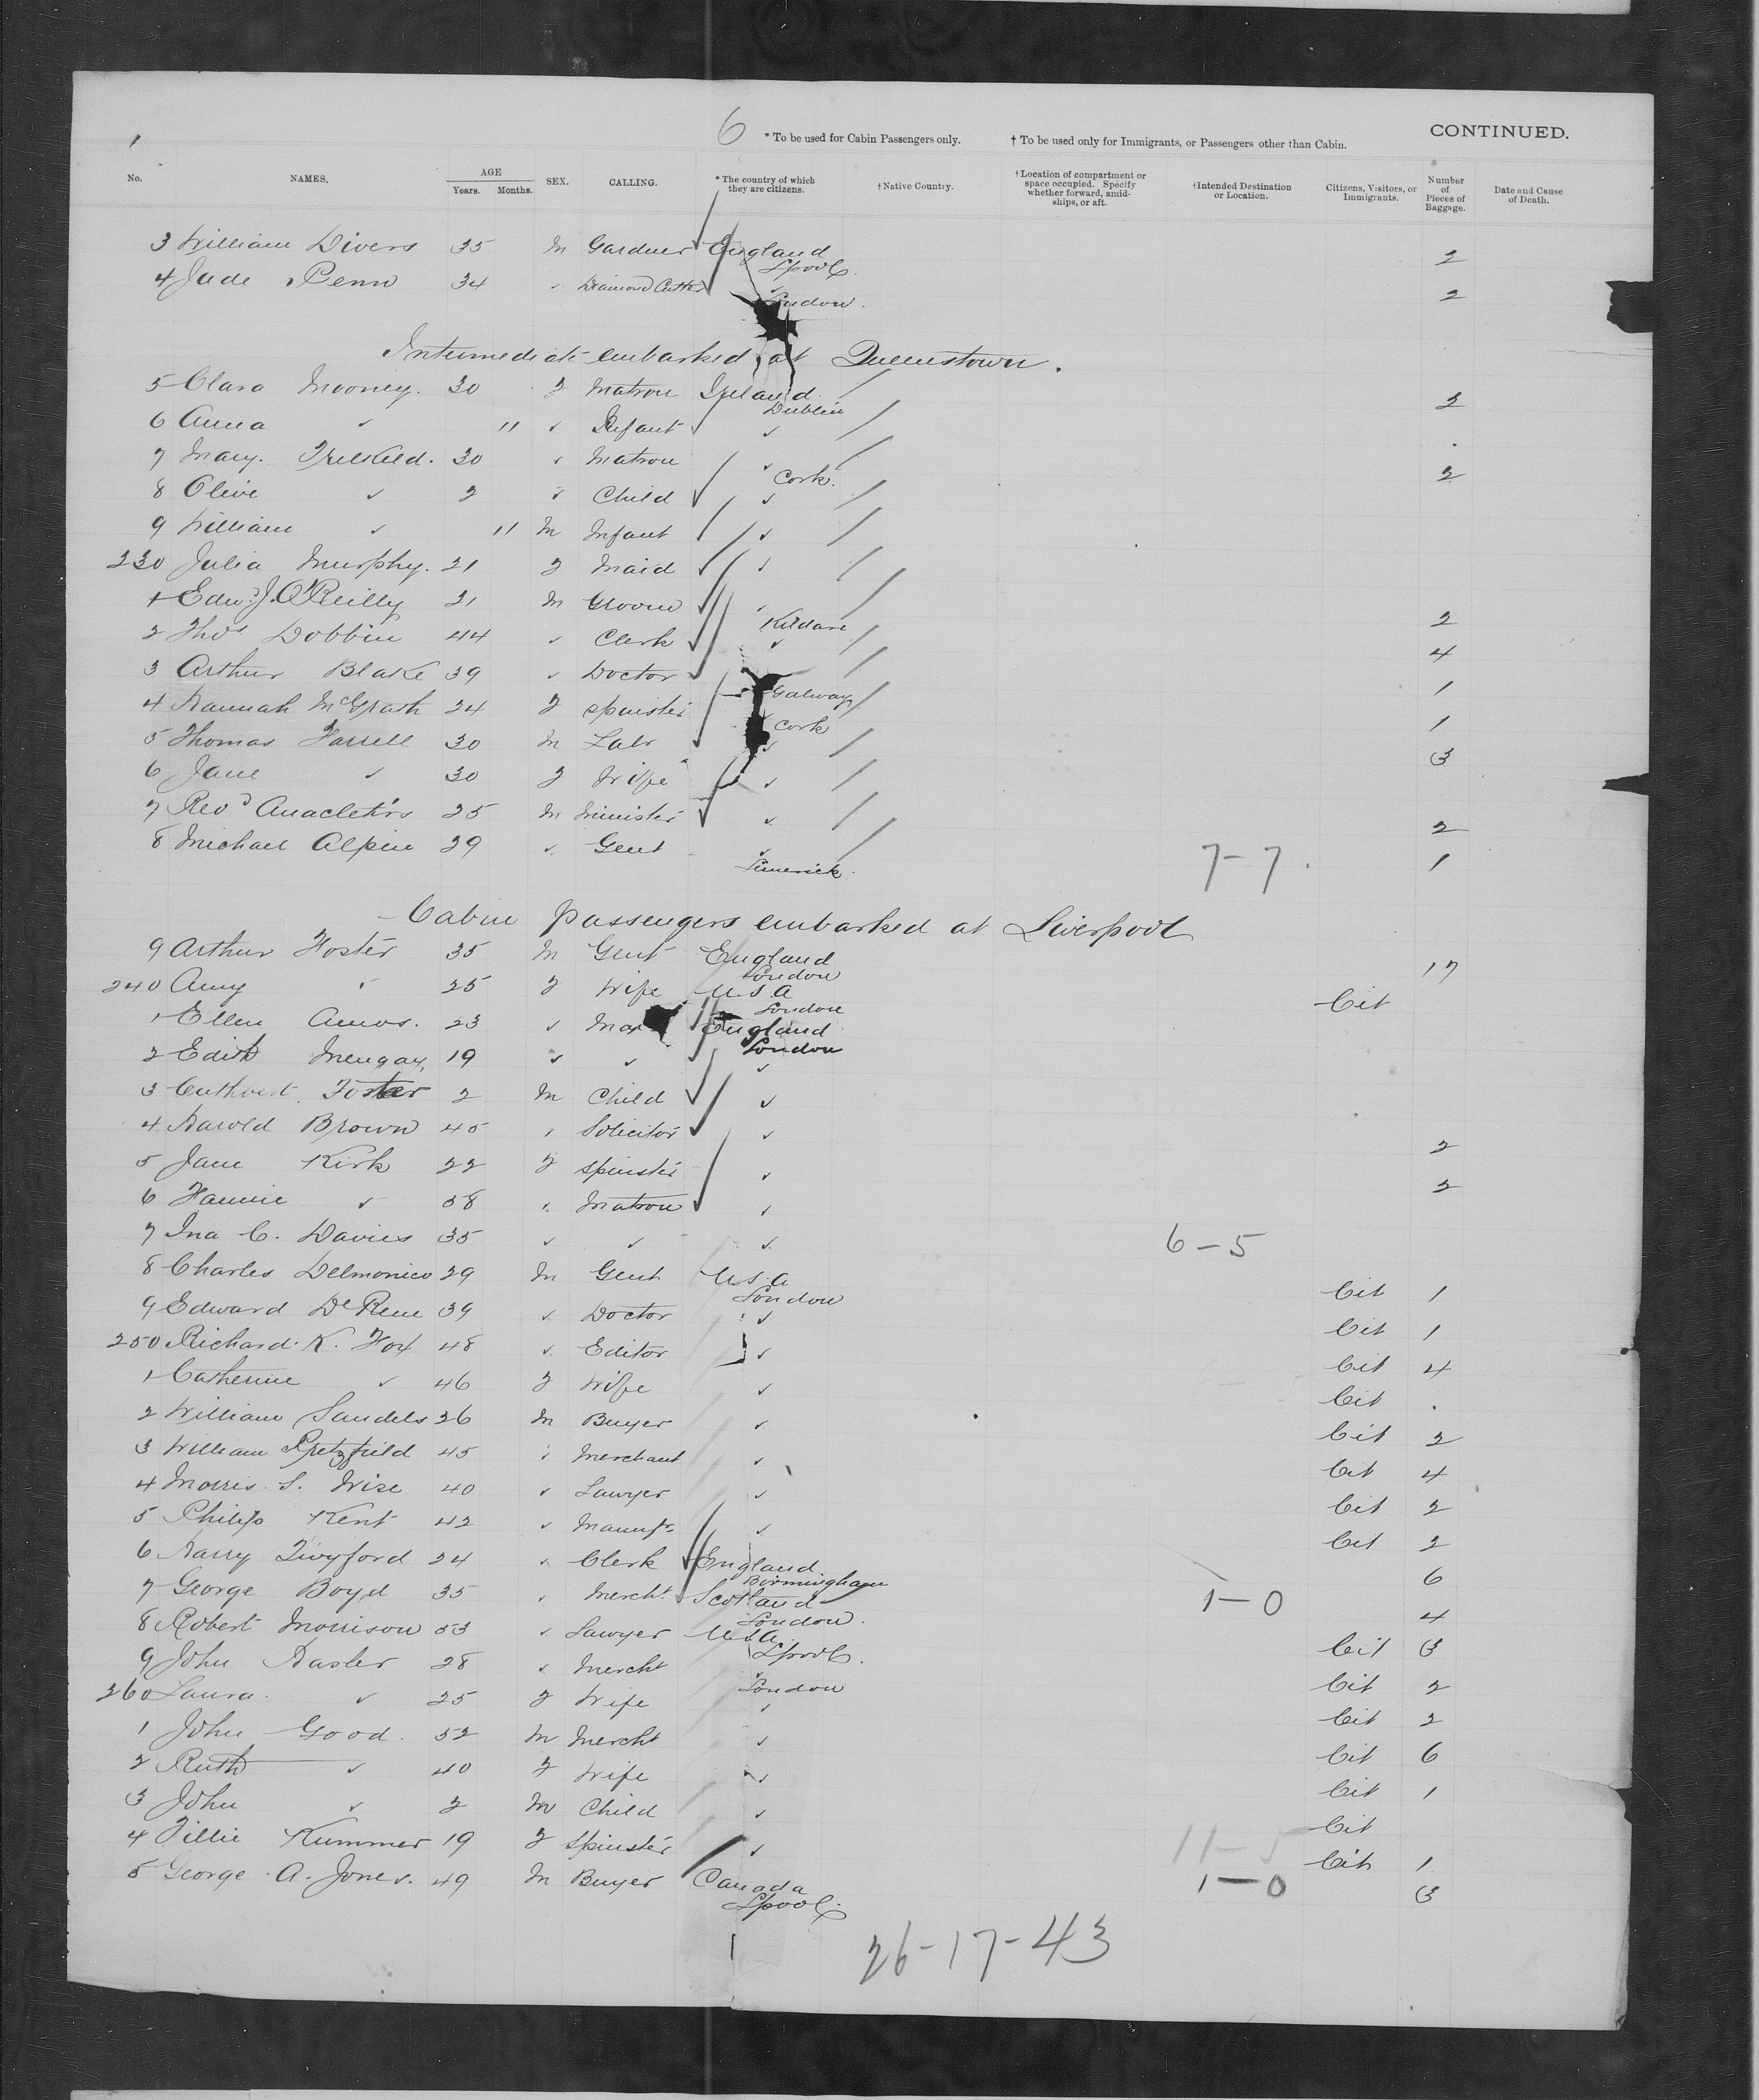 6 * To be used for Cabin Passengers only. † To be used only for Immigrants, or Passengers other than Cabin. CONTINUED.
No. NAMES. AGE Years. Months. SEX. CALLING. * The country of which they are citizens. † Native Country. † Location of compartment or space occupied. Specify whether forward, amidships, or aft. † Intended Destination or Location. Citizens, Visitors, or Immigrants. Number of Pieces of Baggage. Date and Cause of Death.
3 William Divers 35 M Gardner England L'pool. 2
4 Jude Penn 34 ✓ Diamond Cutter ✓ London. 2
Intermediate embarked at Queenstown.
5 Clara Mooney. 30 F Matron Ireland. Dublin 2
6 Anna ✓ 11 ✓ Infant ✓
7 Mary. 30 ✓ Matron ✓ Cork. 2
8 Olive ✓ 2 ✓ Child ✓
9 William ✓ 11 M Infant ✓
230 Julia Murphy. 21 F Maid ✓
1 Edw. J. O'Reilly 21 M Groom Kildare 2
2 Thos Dobbin 44 ✓ Clerk ✓ 4
3 Arthur Blake 39 ✓ Doctor Galway 1
4 Hannah McGrath 24 F Spinster Cork 1
5 Thomas Farrell 30 M Labr ✓ 3
6 Jane ✓ 30 F Wife ✓
7 Revd 25 M Minister ✓ 2
8 Michael Alpin 29 ✓ Gent ✓ Limerick. 7-7. 1
Cabin passengers embarked at Liverpool
9 Arthur Foster 35 M Gent England London 17
240 Amy ✓ 25 F Wife U.S.A London Cit
1 Ellen Amos. 23 ✓ England London
2 Edith 19 ✓ ✓ ✓
3 Cuthbert. Foster 2 M Child ✓
4 Harold Brown 45 ✓ Solicitor ✓ 2
5 Jane Kirk 22 F Spinster ✓ 2
6 Fannie ✓ 58 ✓ Matron ✓
7 Ina C. Davies 35 ✓ ✓ ✓ 6-5
8 Charles Delmonico 29 M Gent U.S.A London Cit 1
9 Edward De Rene 39 ✓ Doctor ✓ Cit 1
250 Richard. K. Fox 48 ✓ Editor ✓ Cit 4
1 Catherine ✓ 46 F Wife ✓ Cit .
2 William Sandels 26 M Buyer ✓ Cit 2
3 William 45 ✓ Merchant ✓ Cit 4
4 Morris. S. Wise 40 ✓ Lawyer ✓ Cit 2
5 Philip Kent 42 ✓ Manufr ✓ Cit 2
6 Harry Twyford 24 ✓ Clerk England Birmingham 6
7 George Boyd 35 ✓ Mercht. Scotland London. 1-0 4
8 Robert Morrison 53 ✓ Lawyer U.S.A. L'pool. Cit 3
9 John Hasler 28 ✓ Mercht ✓ London Cit 2
260 Laura. ✓ 25 F Wife ✓ Cit 2
1 John Good. 52 M Mercht ✓ Cit 6
2 Ruth ✓ 40 F Wife ✓ Cit 1
3 John ✓ 2 M Child ✓ Cit
4 Tillie Kummer 19 F Spinster ✓ 11-5 Cit 1
5 George. A. Jones. 49 M Buyer Canada L'pool. 1-0 3
26-17-43